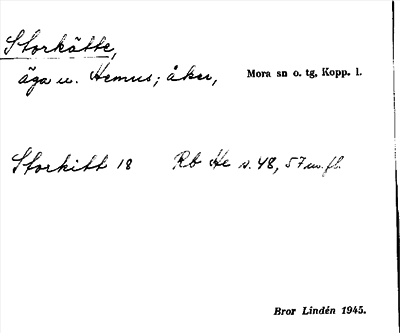 Storkätte,
äga u. Hemus; åker, Mora sn o. tg, Kopp. l.
Storkitt 18 Rb He s. 48, 57 m. fl.
Bror Lindén 1945.